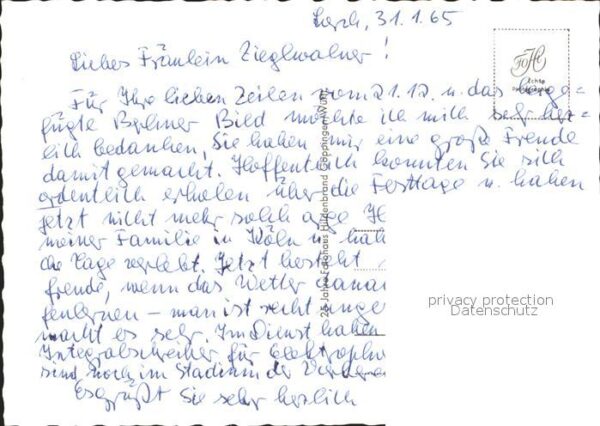 Lorch, 31.1.65
Liebes Fräulein Zieglwalner!
Für Ihre lieben Zeilen vom 21.12. u. das beige-
fügte Berliner Bild möchte ich mich sehr herz-
lich bedanken, Sie haben mir eine große Freude
damit gemacht. Hoffentlich konnten Sie sich
ordentlich erholen über die Festtage u. haben
jetzt nicht mehr solch arge
meiner Familie in Köln u.
die Tage verlebt. Jetzt besteht
freude, wenn das Wetter
man ist recht
macht es sehr. Im Dienst haben
Integralschreiber für Elektropho
sind noch im Stadium der
Es grüßt Sie sehr herzlich
25 Jahre Fotohaus Hildenbrand Göppingen/Württ.
Echte
privacy protection
Datenschutz